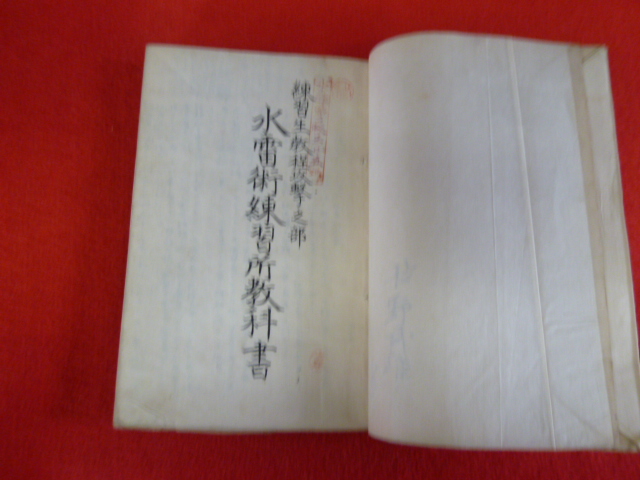 練習生教程攻撃之部
水雷術練習所教科書